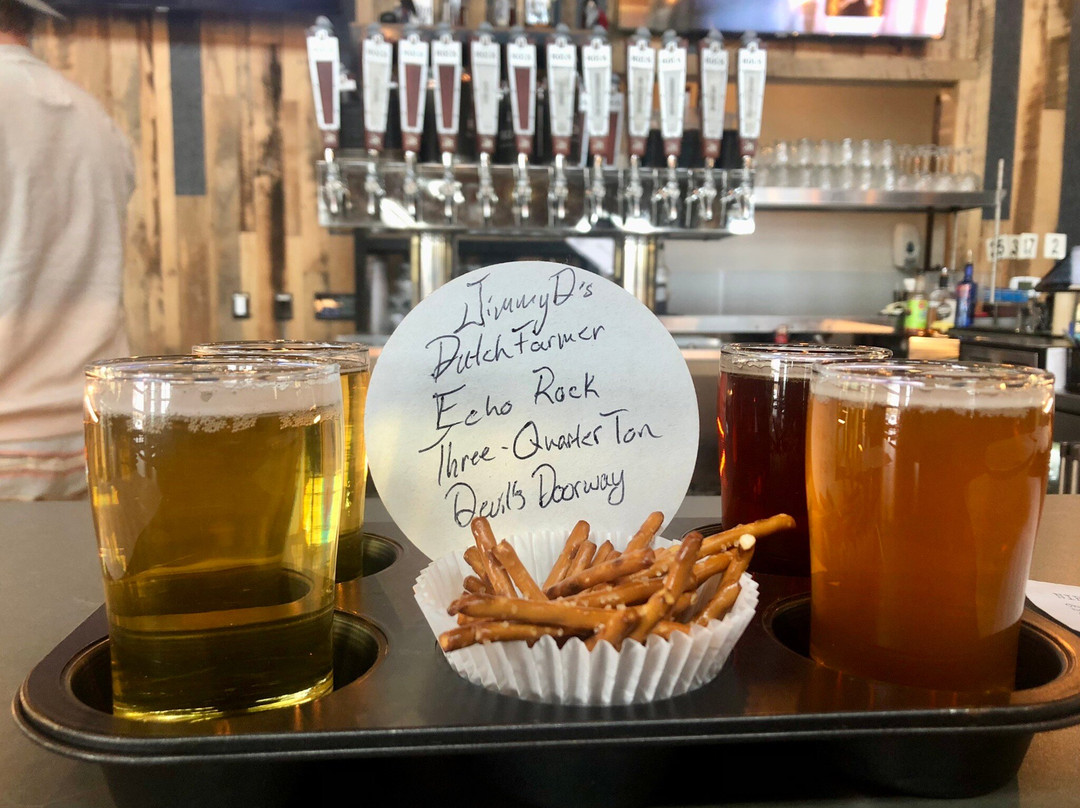 JimmyD's
Dutch Farmer
Echo Rock
Three-Quarter Ton
Devil's Doorway